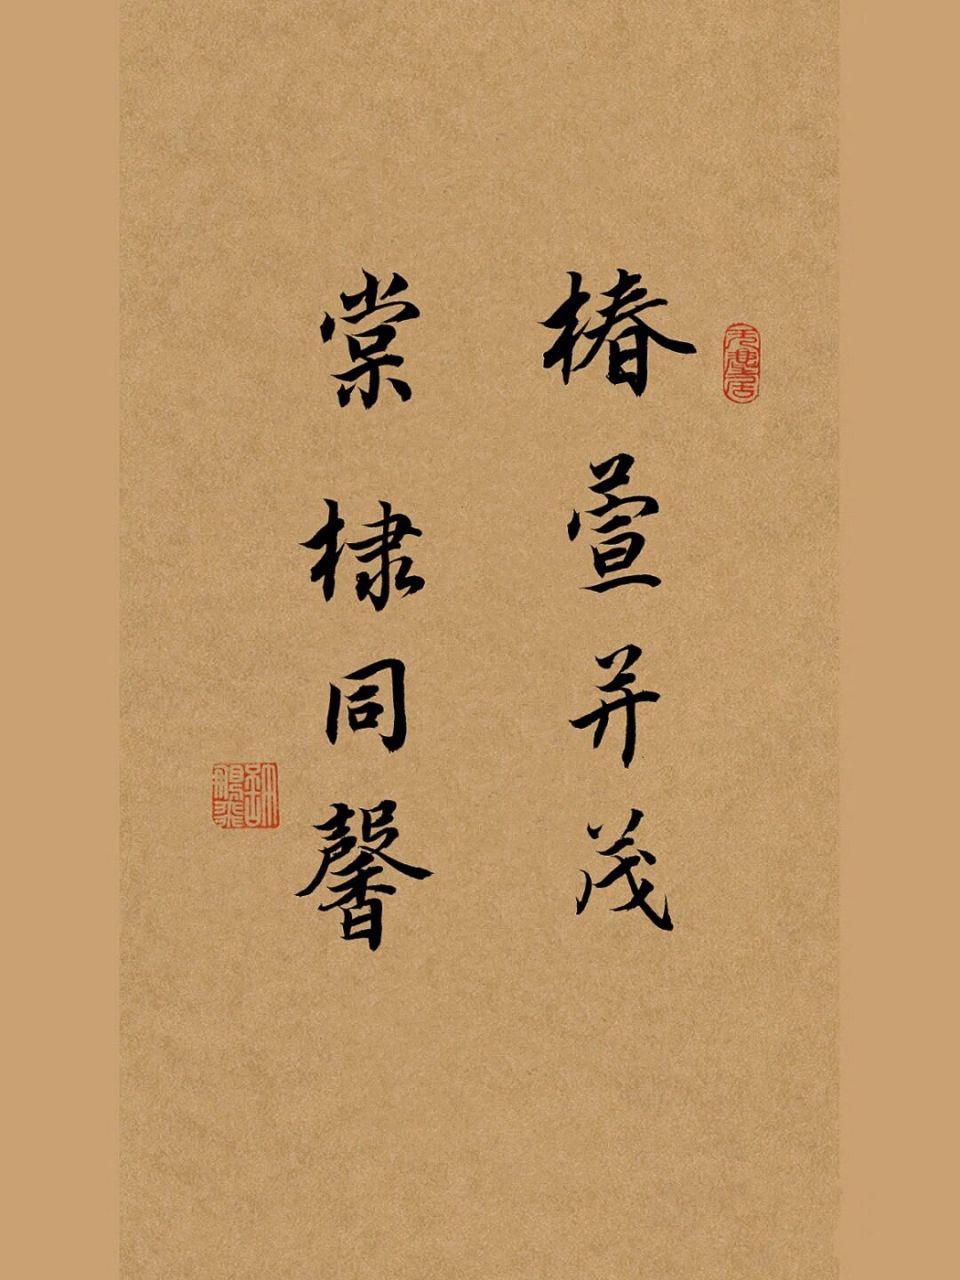 椿萱并茂
棠棣同馨